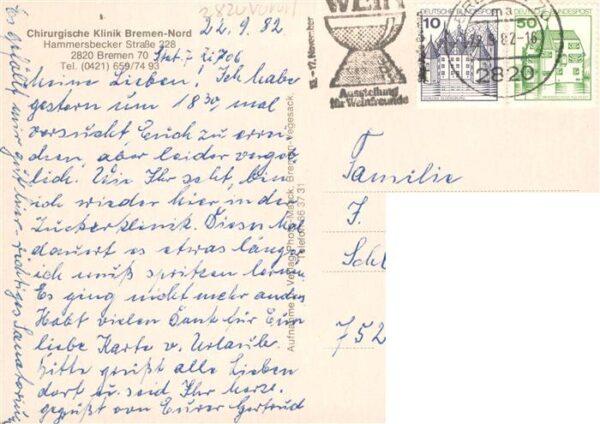 Chirurgische Klinik Bremen-Nord
Hammersbecker Straße 228
2820 Bremen 70
Tel. (0421) 659/74 93
22.9.82
Stat. 7 Zi 706
Meine Lieben, Ich habe
gestern um 18 30 mal
versucht Euch zu errei
chen, aber leider vergeb
lich. Wie Ihr seht, bin
ich wieder hier in der
Zuckerklinik. Dieses Mal
dauert es etwas läng
ich muß spritzen lernen
Es ging nicht mehr anders
Habt vielen Dank für Eure
liebe Karte v. Urlaub.
Bitte grüßt alle Lieben
dort u. seid Ihr herzl.
gegrüßt von Eurer Gertrud
Es gefällt mir gut hier - richtiges Sanatorium
Aufnahme u. Verlag Photo-Maack, Bremen-Vegesack,
Telefon 66 37 31
WEIN
Ausstellung
für Weinfreunde
10
DEUTSCHE BUNDESPOST
50
DEUTSCHE BUNDESPOST
82-16
2820
Familie
F.
Schl
752